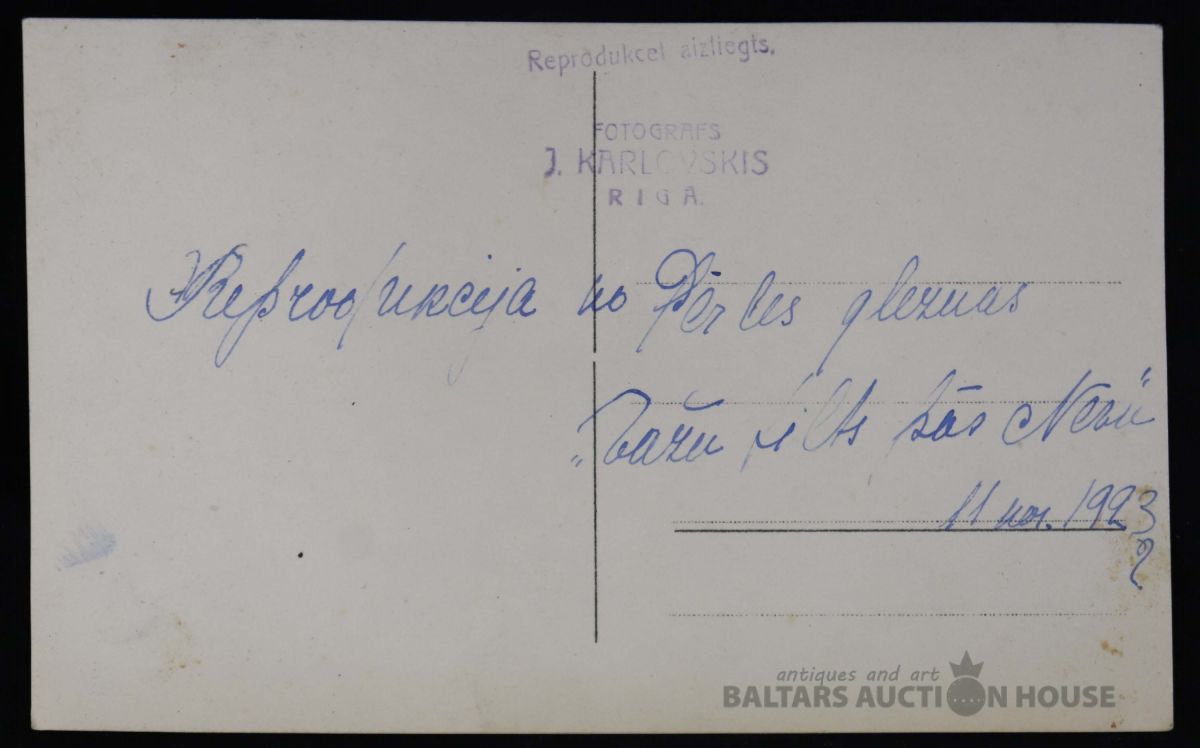 Reprodukcet aizliegts.
FOTOGRAFS
J. KARLOVSKIS
RIGĀ.
Reprodukcija no Pērles gleznas
„Važu tilts pār Nevu"
11 nov. 1923
antiques and art
BALTARS AUCTION HOUSE